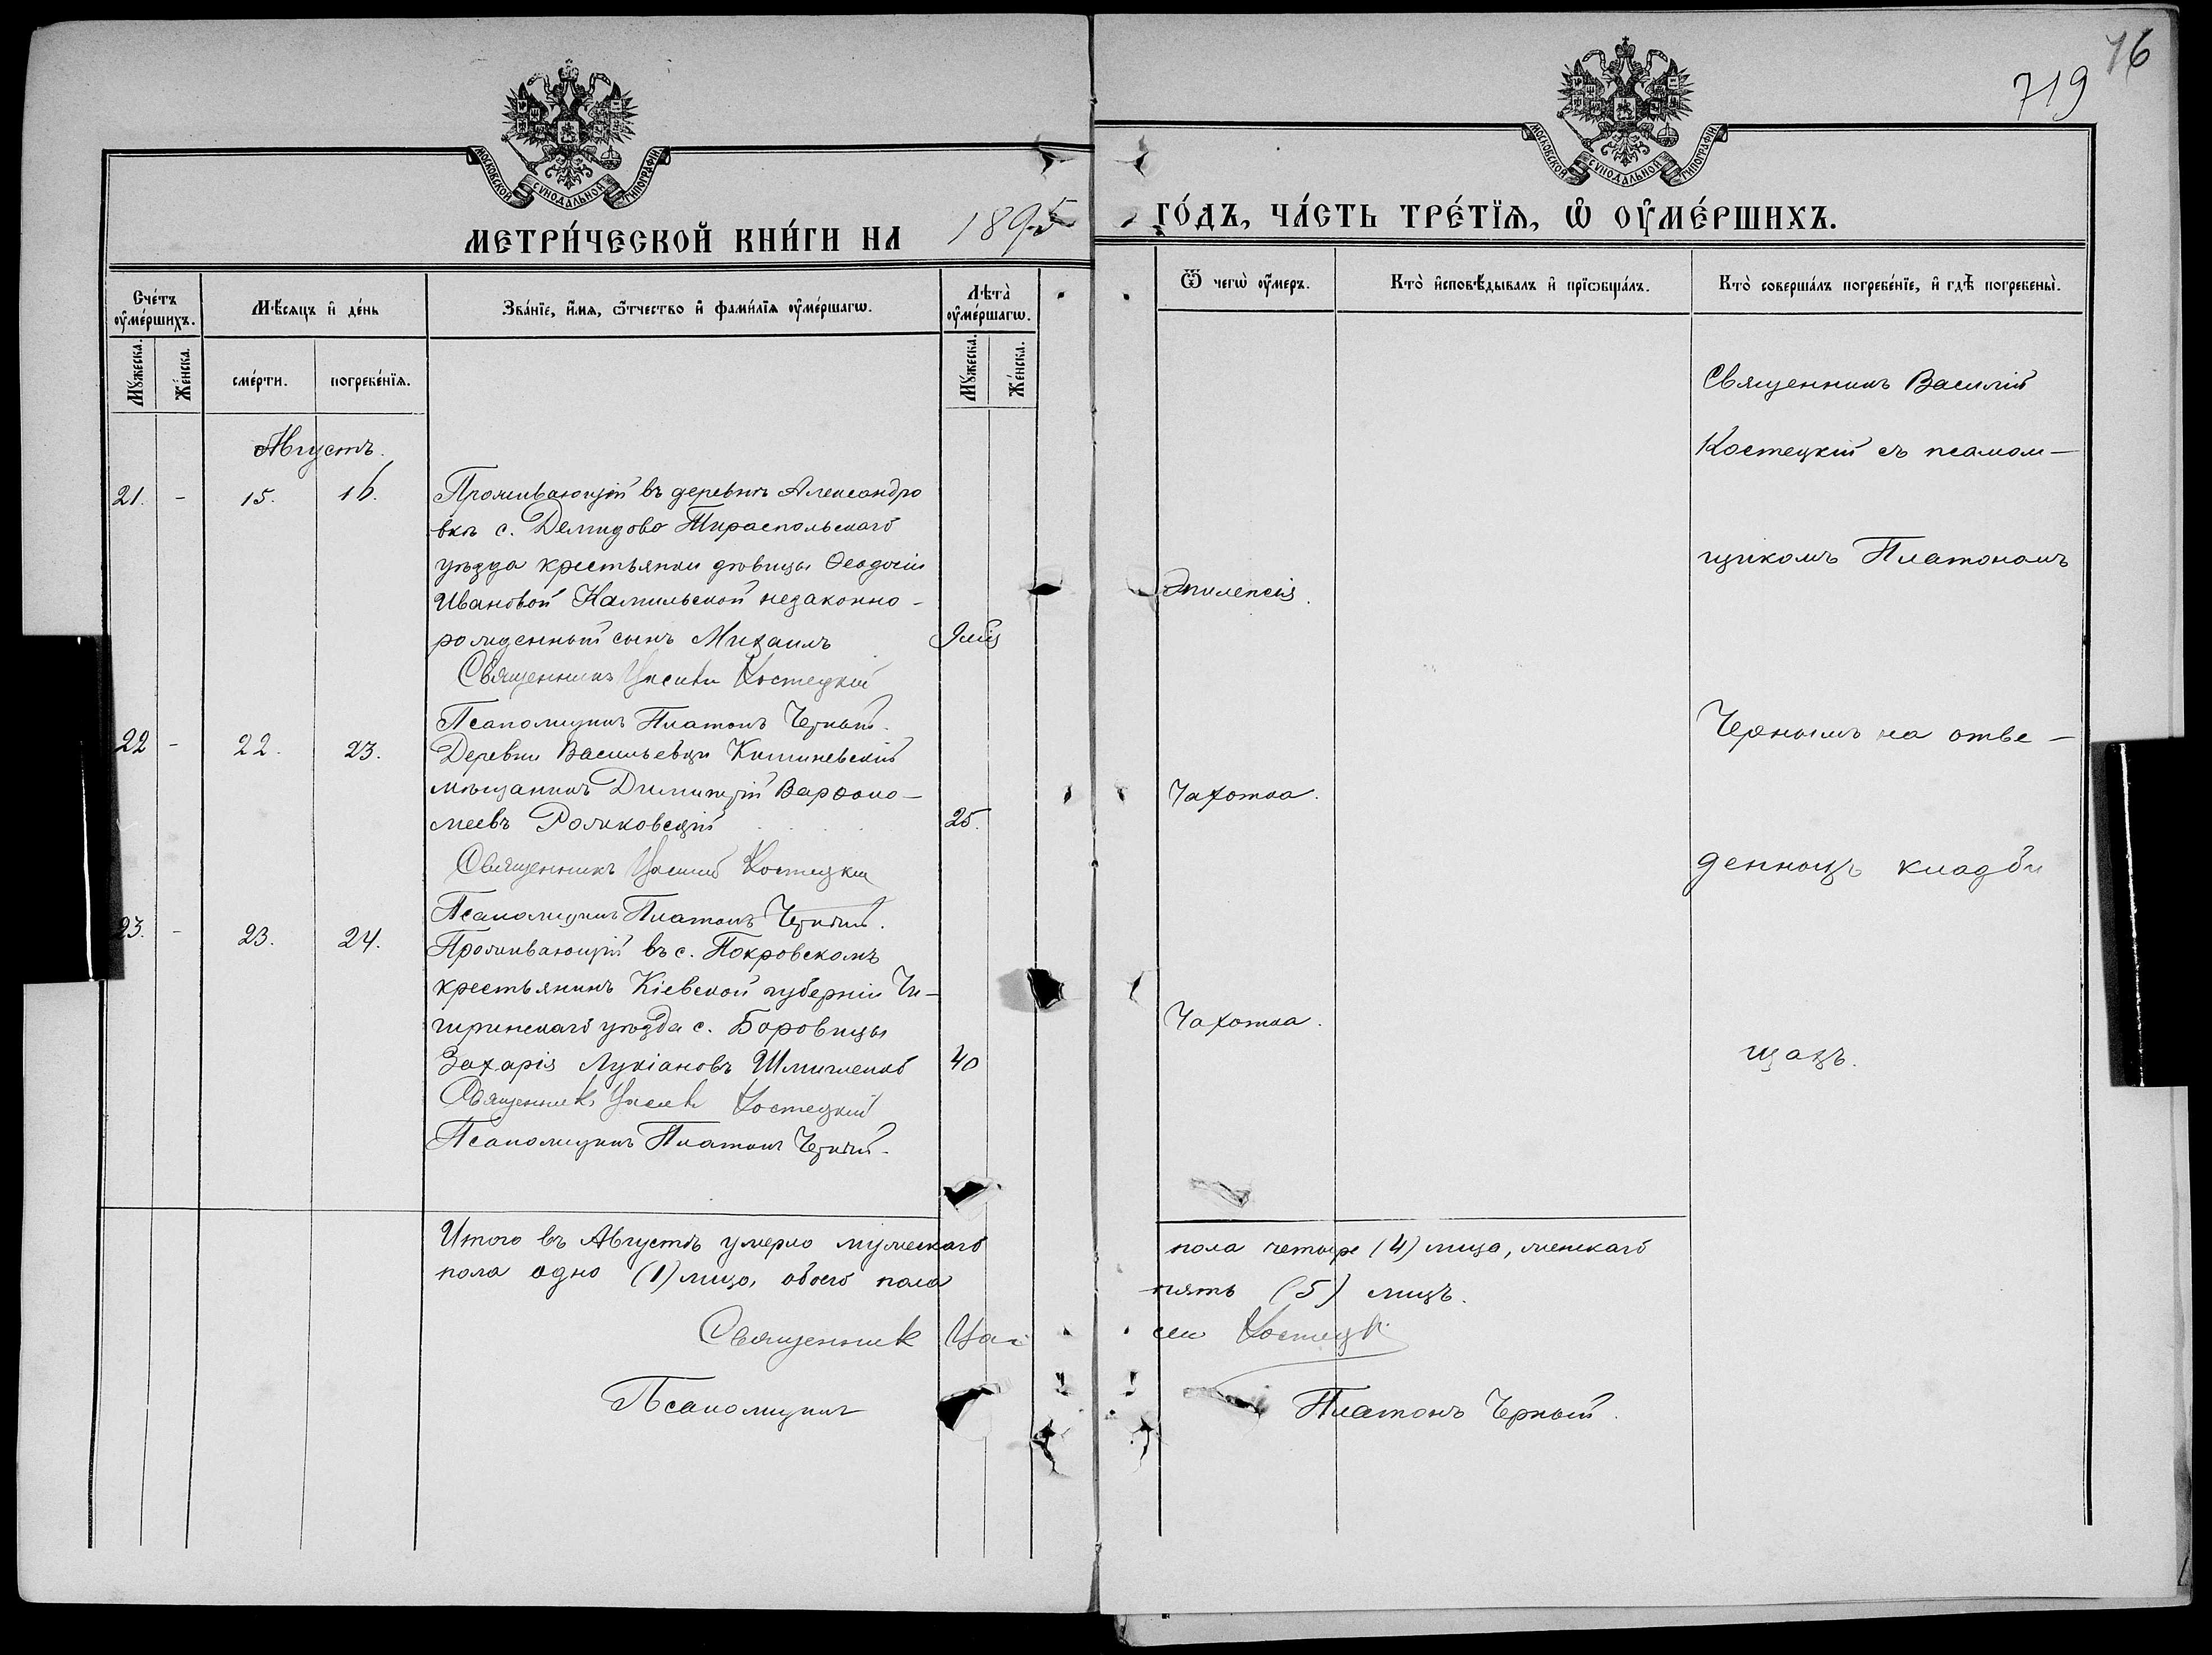 76
719
МОСКОВСКОЙ СѴНОДАЛЬНОЙ ТИПОГРАФІИ
МОСКОВСКОЙ СѴНОДАЛЬНОЙ ТИПОГРАФІИ
МЕТРИ́ЧЕСКОЙ КНИ́ГИ НА 1895 ГО́ДЪ, ЧА́СТЬ ТРЕ́ТЇѦ, Ѡ҆ ОУ҆МЕ́РШИХЪ.
Сче́тъ оу҆ме́ршихъ.
Мѣ́сяцъ и҆ де́нь
Зва́нїе, и҆́мя, ѻ҆́тчество и҆ фами́лїя оу҆ме́ршагѡ.
Лѣта̀ оу҆ме́ршагѡ.
Ѿ чегѡ̀ оу҆́меръ.
Кто̀ и҆сповѣ́дывалъ и҆ прїѡбща́лъ.
Кто̀ соверша́лъ погребе́нїе, и҆ гдѣ̀ погребены̀.
Мꙋ́жеска.
Же́нска.
сме́рти.
погребе́нїя.
Мꙋ́жеска.
Же́нска.
Августъ.
21. - 15. 16. Проживающій въ деревнѣ Александро
вкѣ с. Демидово Тираспольскаго
уѣзда крестьянки дѣвицы Ѳеодосіи
Ивановой Камильской незаконно-
рожденный сынъ Михаилъ
Эпилепсія.
Священникъ Василій Костецкій
Псаломщикъ Платонъ Черный.
22 - 22. 23. Деревни Васильевки Кишиневскій
мѣщанинъ Димитрій Варѳоло-
меевъ Рожковскій 25. Чахотка.
Священникъ Василій Костецкій
Псаломщикъ Платонъ Черный.
23. - 23. 24. Проживающій въ с. Покровскомъ
крестьянинъ Кіевской губерніи Чи-
гиринскаго уѣзда с. Боровицы
Захарія Лукіановъ 40 Чахотка.
Священникъ Василій Костецкій
Псаломщикъ Платонъ Черный.
Священникъ Василій
Костецкій съ псалом-
щикомъ Платономъ
Чернымъ на отве-
денныхъ кладби
щахъ.
Итого въ Августѣ умерло мужескаго пола четыре (4) лица, женскаго
пола одно (1) лицо, обоего пола пять (5) лицъ.
Священникъ Василій Костецкій
Псаломщикъ Платонъ Черный.